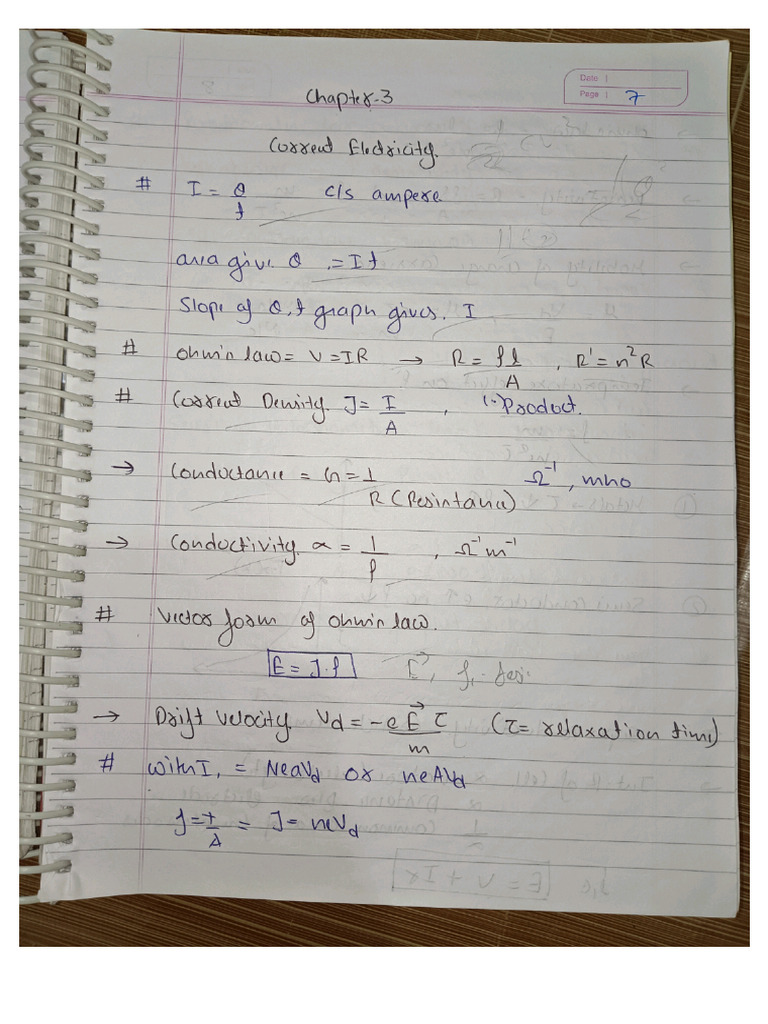 Date |
Page | 7
Chapter-3
Current Electricity.
# I = Q/t c/s ampere
area give Q = It
Slope of Q,t graph gives I
# ohm's law = V=IR → R = ρl/A , R' = n²R
# Current Density J = I/A , (·) Product.
→ Conductance = G = 1/R (Resistance) Ω⁻¹, mho
→ Conductivity ∝ = 1/ρ , Ω⁻¹m⁻¹
# Vector form of ohm's law.
E = J·ρ E⃗,
→ Drift velocity Vd = -eE⃗τ/m (τ = relaxation time)
# with I, = NeAVd or neAVd
J = I/A = J = neVd
E = V + Ir